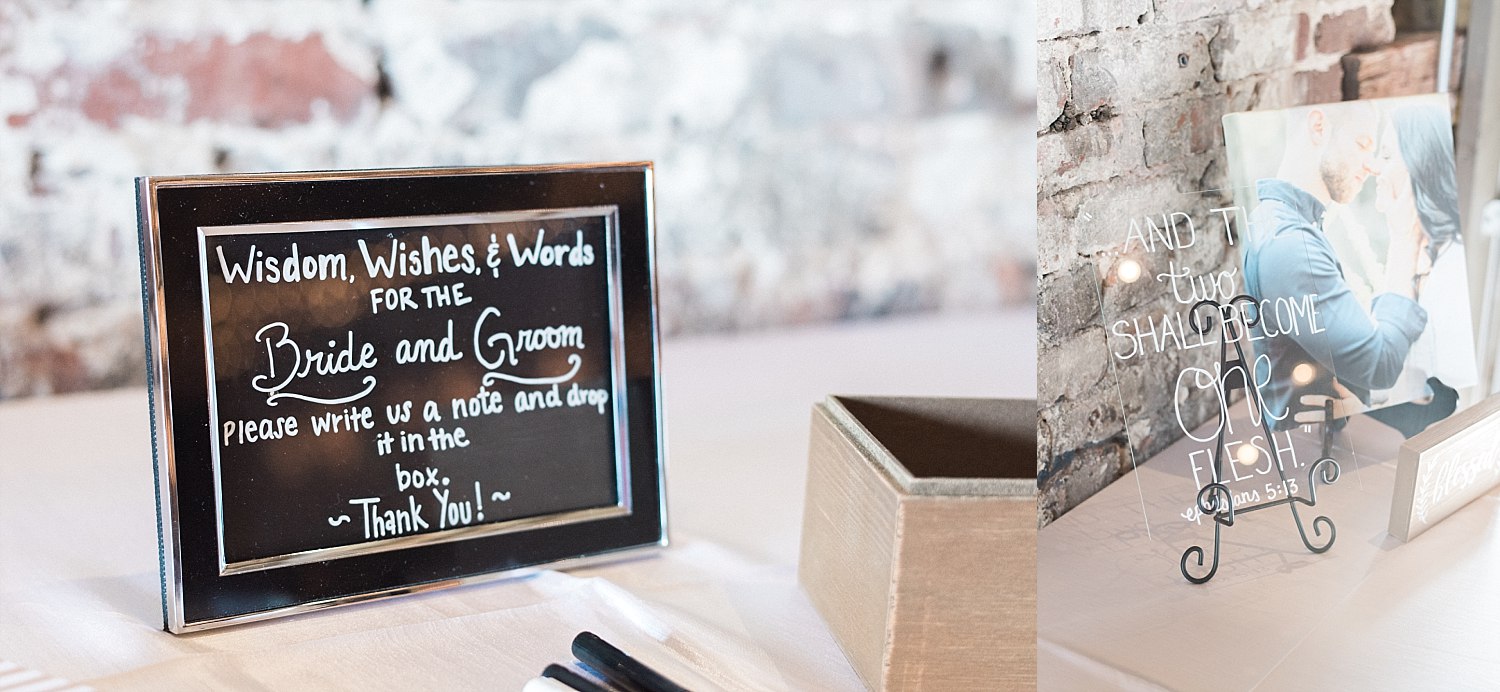 Wisdom, Wishes, & Words
FOR THE
Bride and Groom
please write us a note and drop
it in the
box.
~Thank You!~
"...AND TH
two
SHALL BECOME
one
FLESH."
ephesians 5:13
blessed